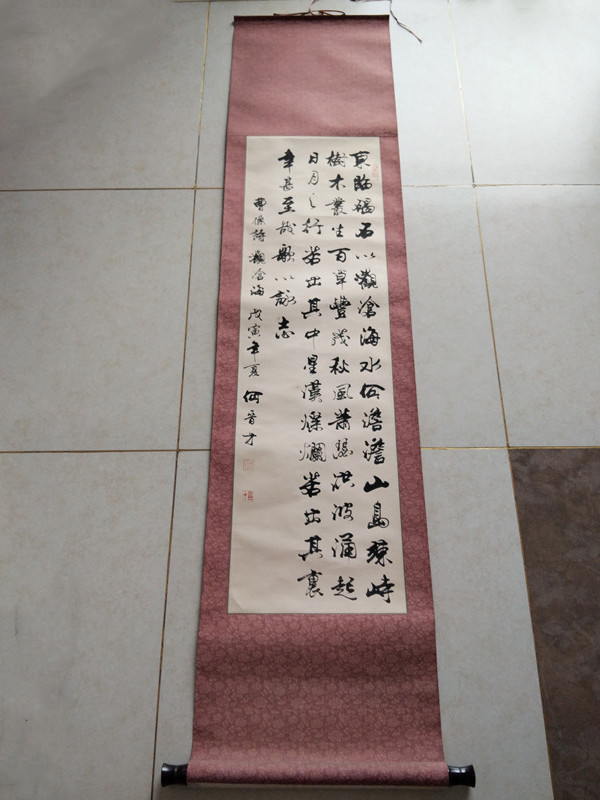 東臨碣石以觀滄海水何澹澹山島竦峙
樹木叢生百草豐茂秋風蕭瑟洪波涌起
日月之行若出其中星漢燦爛若出其裏
幸甚至哉歌以詠志
曹操詩觀滄海 戊寅年夏 何晋才